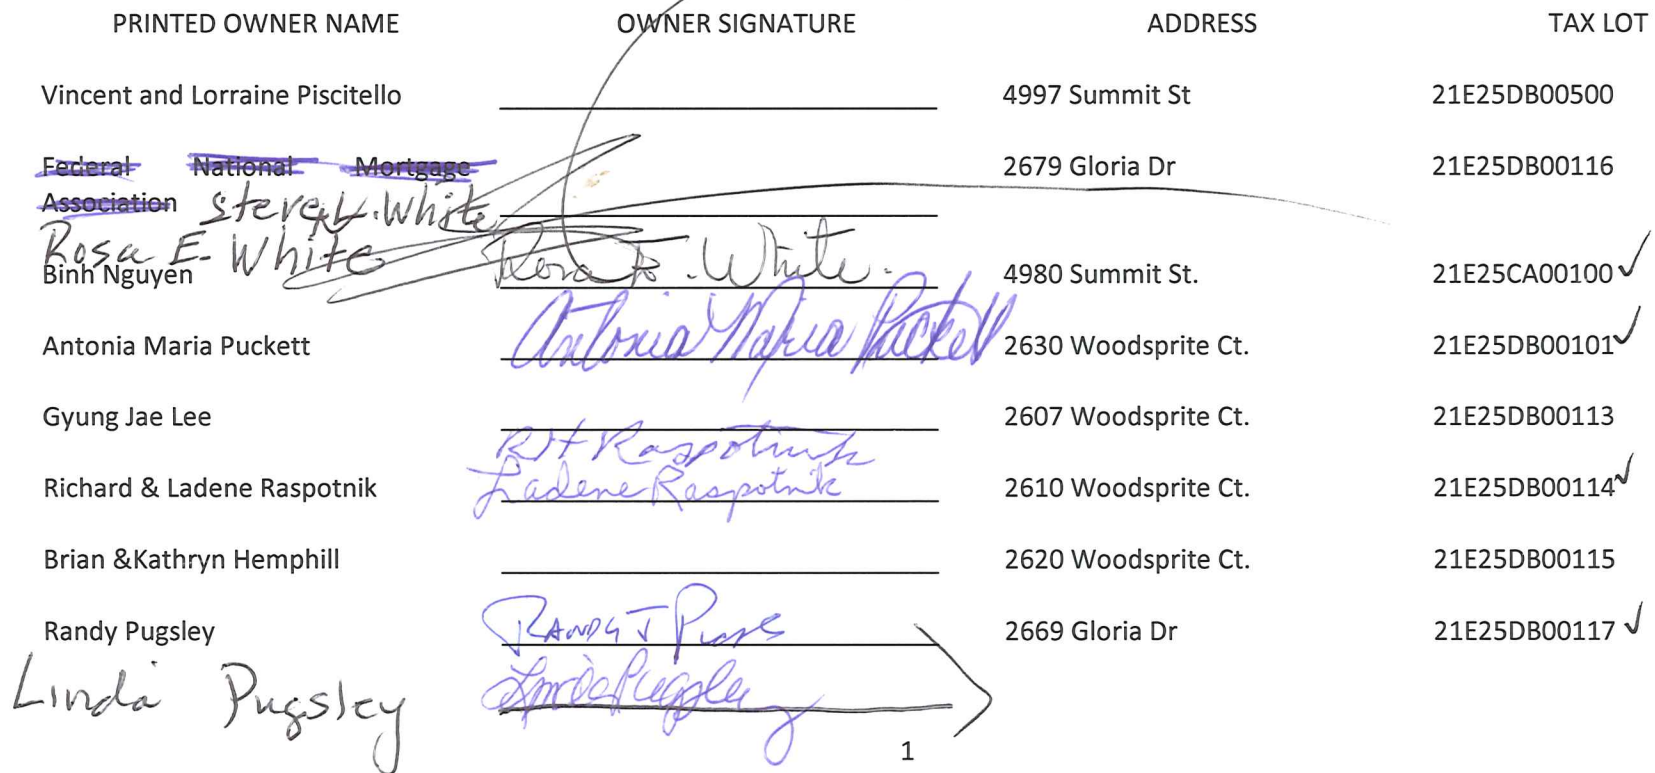 PRINTED OWNER NAME OWNER SIGNATURE ADDRESS TAX LOT
Vincent and Lorraine Piscitello 4997 Summit St 21E25DB00500
Federal National Mortgage 2679 Gloria Dr 21E25DB00116
Association Steve White
Rosa E. White Rosa E. White.
Binh Nguyen 4980 Summit St. 21E25CA00100 ✓
Antonia Maria Puckett Antonia Maria Puckett 2630 Woodsprite Ct. 21E25DB00101 ✓
Gyung Jae Lee 2607 Woodsprite Ct. 21E25DB00113
RH Raspotnik
Richard & Ladene Raspotnik Ladene Raspotnik 2610 Woodsprite Ct. 21E25DB00114 ✓
Brian &Kathryn Hemphill 2620 Woodsprite Ct. 21E25DB00115
Randy Pugsley Randy J 2669 Gloria Dr 21E25DB00117 ✓
Linda Pugsley Linda Pugsley
1